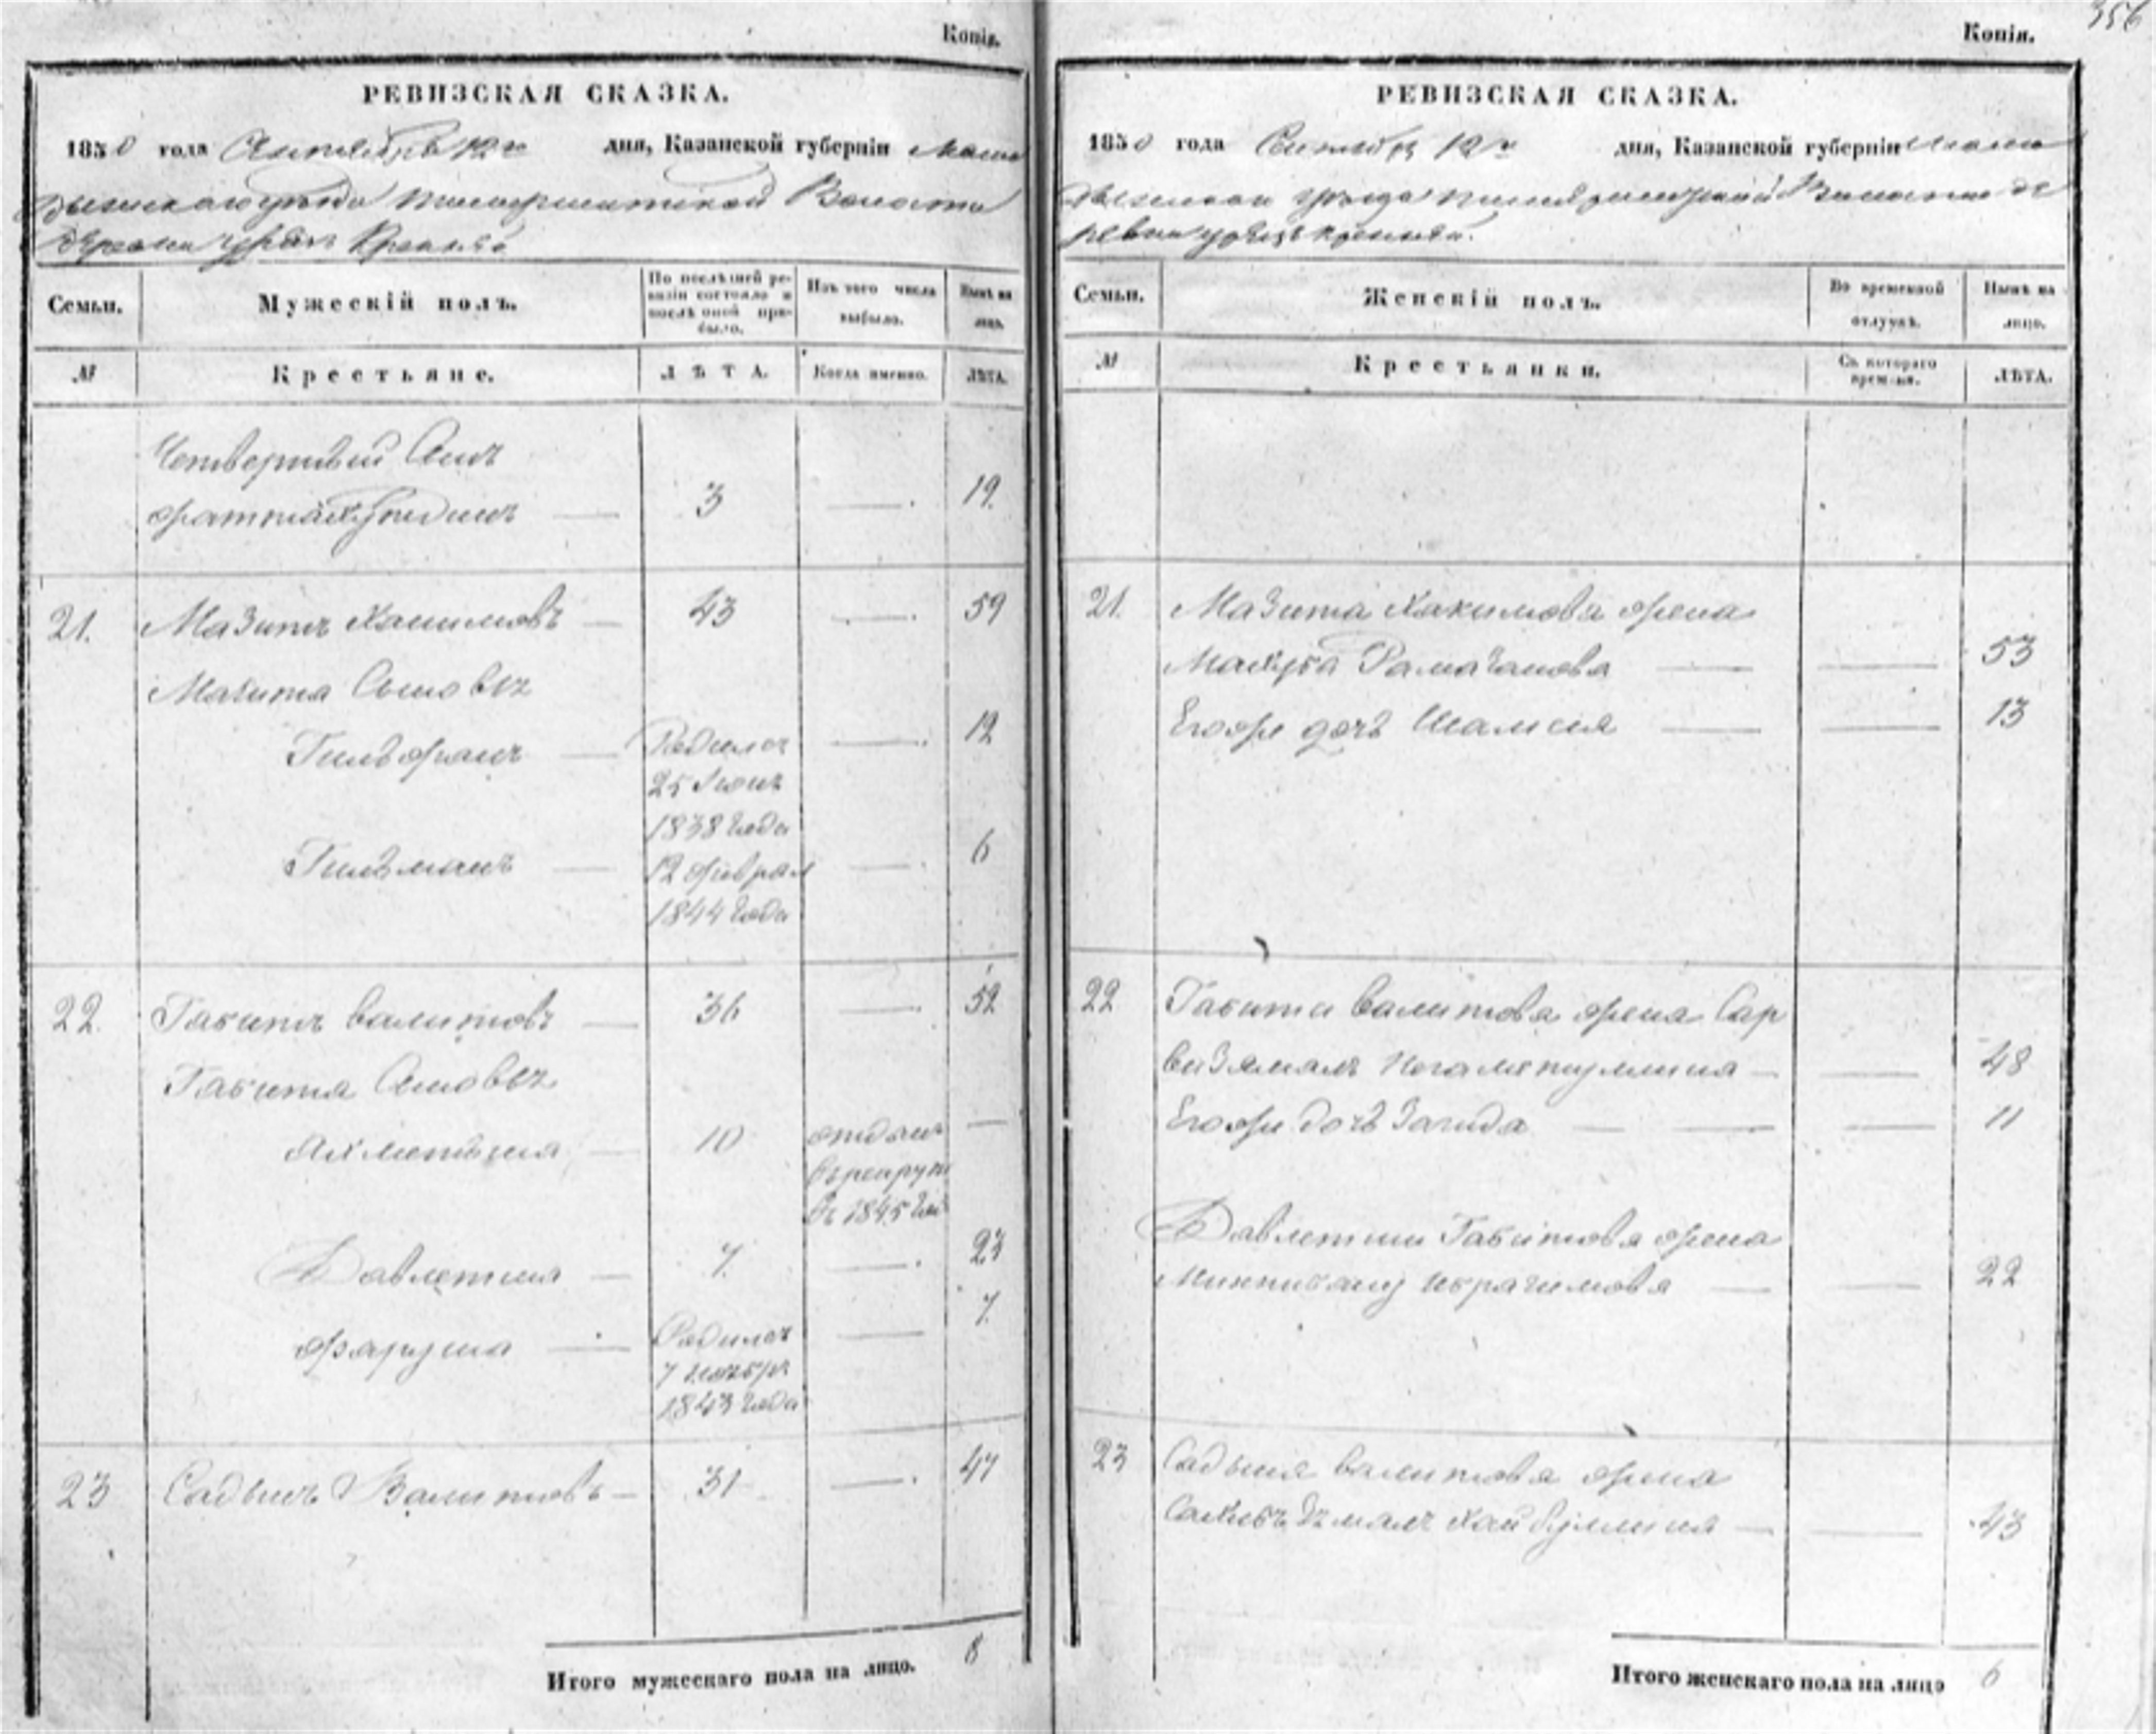 Копія.
РЕВИЗСКАЯ СКАЗКА.
1850 года Сентября 12 дня, Казанской губерніи Мама
дышскаго уѣзда Волости
деревни
Семьи.
Мужескій полъ.
По послѣдней ре-
визіи состояло и
послѣ оной при-
было.
Изъ того числа
выбыло.
Нынѣ на
лицо.
№
Крестьяне.
ЛѢТА.
Когда именно.
ЛѢТА.
Четвертый Сынъ
3 — 19.
21. Мазитъ Хакимовъ — 43 — 59
Мазита Сыновья
— Родился — 12
25 Іюня
1838 года
Гильманъ — 12 Феврал — 6
1844 года
22. Габитъ Валитовъ — 36 — 52
Габита Сыновья
Ахметша — 10 отданъ —
въ рекруты
въ 1845 год
Давлетша — 7. — 23
Фаруша — Родился — 7.
7 Ноября
1843 года
23 Садыкъ Валитовъ — 31 — 47
Итого мужескаго пола на лицо. 8
356
Копія.
РЕВИЗСКАЯ СКАЗКА.
1850 года Сентября 12 дня, Казанской губерніи Мама
дышскаго уѣзда Волости де
ревни
Семьи.
Женскій полъ.
Во временной
отлучкѣ.
Нынѣ на
лицо.
№
Крестьянки.
Съ котораго
времени.
ЛѢТА.
21. Мазита Хакимова жена
— — 53
Егожъ дочь Шамсия — — 13
22 Габита Валитова жена Сар
визямалъ — — 48
Егожъ дочь Загида — — 11
Давлетши Габитова жена
Ибрагимова — — 22
23 Садыка Валитова жена
Хайбуллина — — 43
Итого женскаго пола на лицо 6